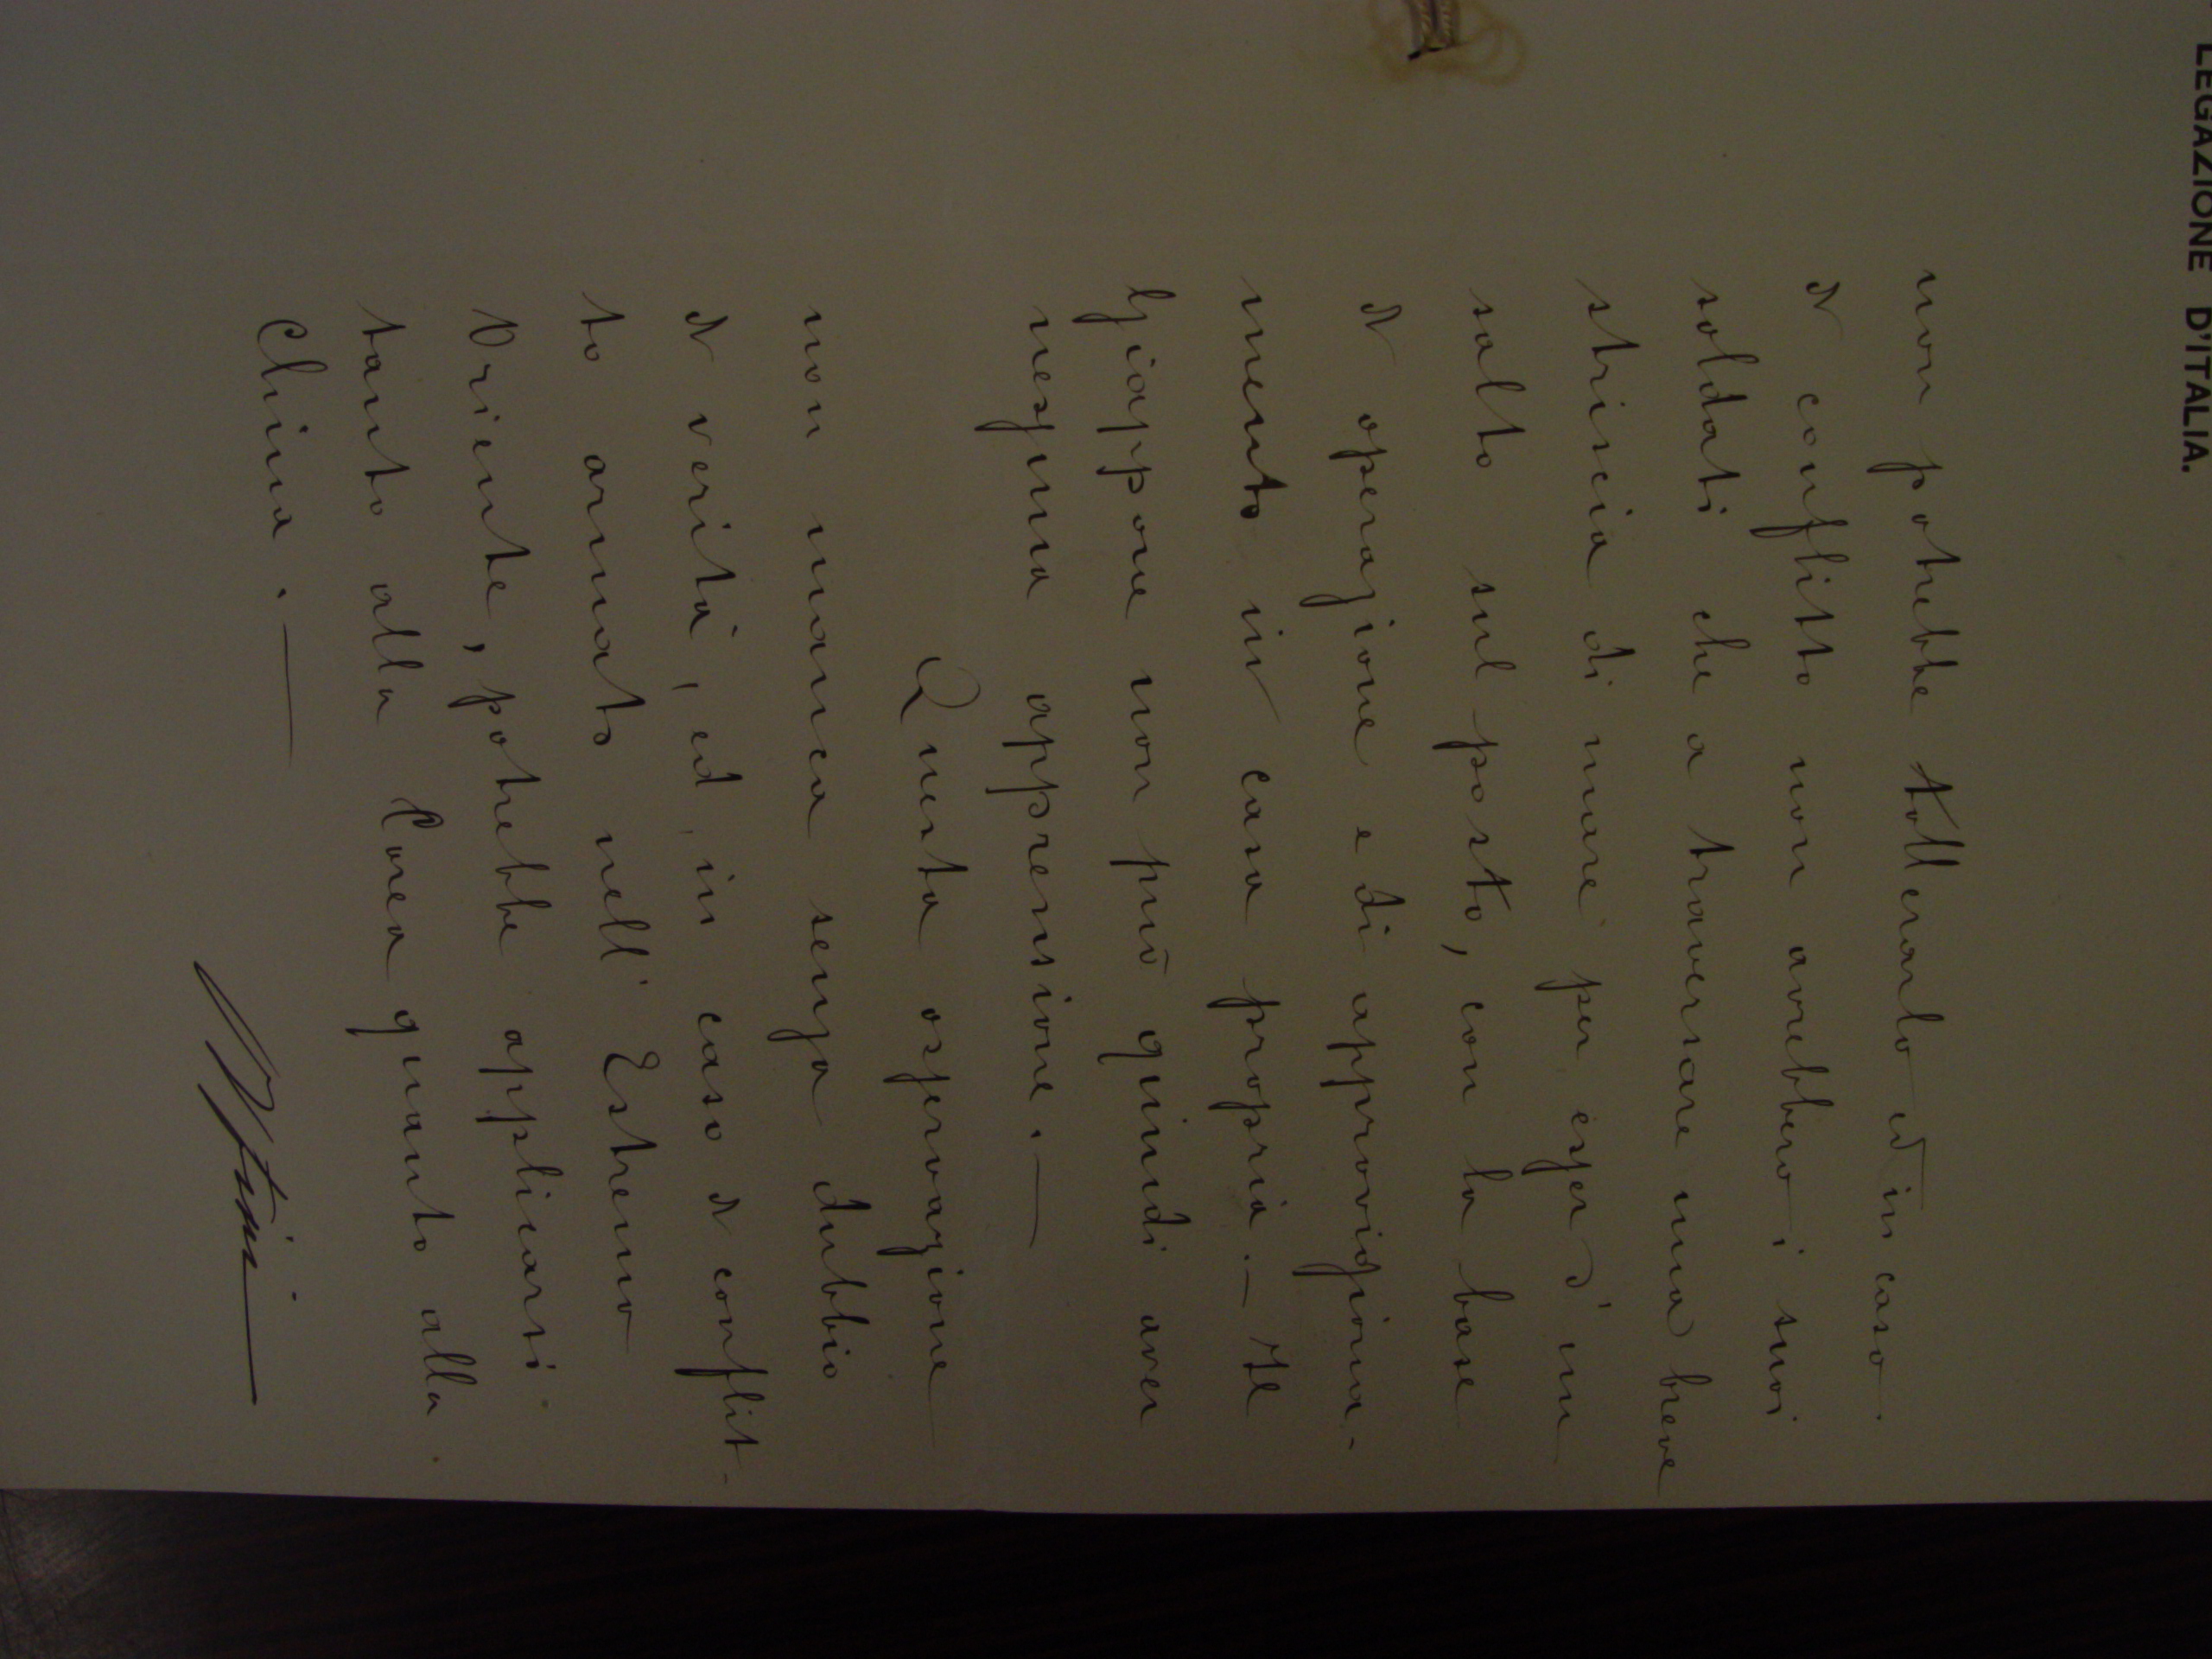 LEGAZIONE D'ITALIA.
non potrebbe tollerarlo ed in caso
di conflitto non avrebbero i suoi
soldati che a traversare una breve
striscia di mare per esser d'un
salto sul posto, con la base
di operazione e di approvigiona-
mento in casa propria. — Il
Giappone non può quindi aver
nessuna apprensione. —
Questa osservazione
non manca senza dubbio
di verità, ed, in caso di conflit-
to armato nell' Estremo
Oriente, potrebbe applicarsi
tanto alla Corea quanto alla
China. —